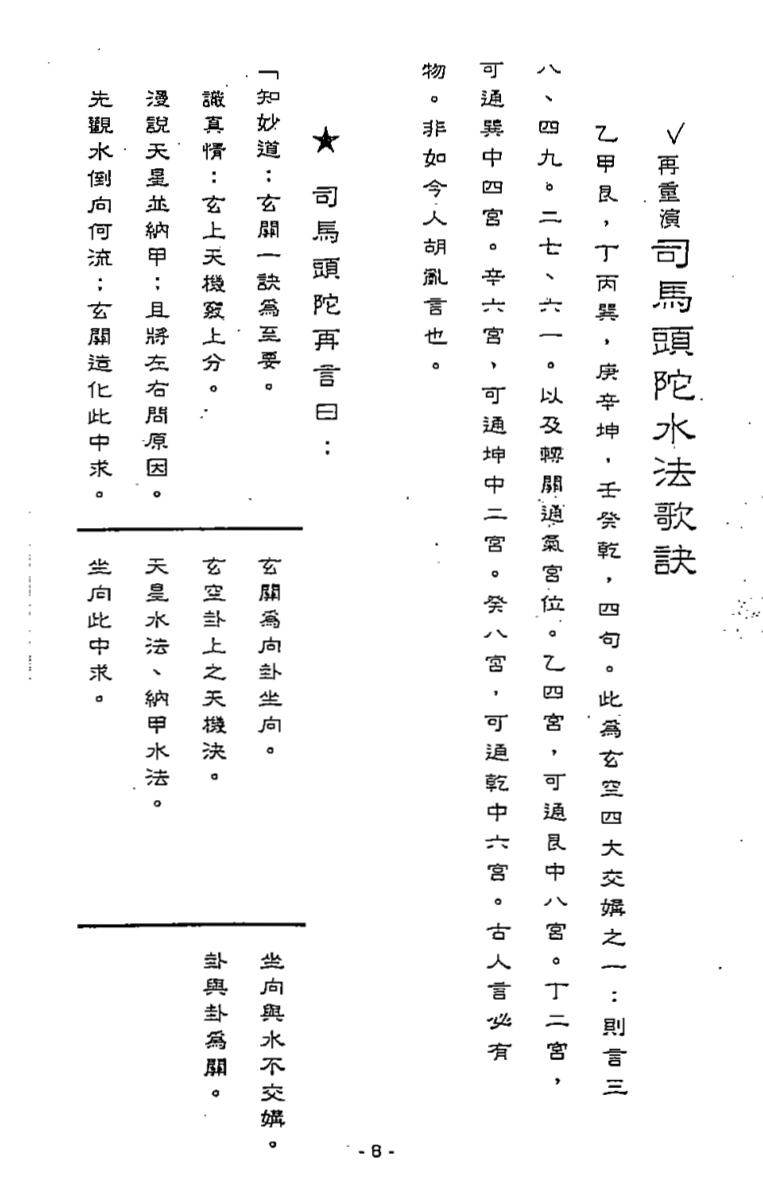 ✓再重演司馬頭陀水法歌訣
乙甲艮，丁丙巽，庚辛坤，壬癸乾，四句。此為玄空四大交媾之一：則言三
八、四九。二七、六一。以及輕關通氣宮位。乙四宮，可通艮中八宮。丁二宮，
可通巽中四宮。辛六宮、可通坤中二宮。癸八宮，可通乾中六宮。古人言必有
物。非如今人胡亂言也。
★ 司馬頭陀再言曰：
「知妙道：玄關一訣為至要。
玄關為向卦坐向。
坐向與水不交媾。
識真情：玄上天機竅上分。
玄空卦上之天機決。
卦與卦為關。
漫說天星並納甲；且將左右問原因。
天星水法、納甲水法。
先觀水倒向何流；玄關造化此中求。
坐向此中求。
- 8 -